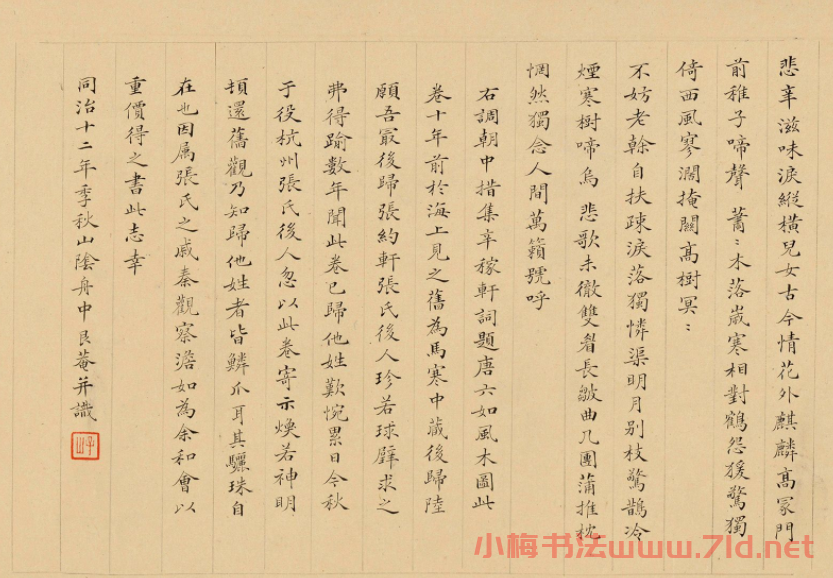 悲辛滋味淚縱橫兒女古今情花外麒麟高冢門
前稚子啼聲 蕭〻木落歲寒相對鶴怨猨驚獨
倚西風寥濶掩關高樹冥〻
不妨老榦自扶疎淚落獨憐渠明月别枝驚鵲冷
煙寒樹啼烏 悲歌未徹雙眉長皺曲几團蒲推枕
惘然獨念人間萬籟號呼
右調朝中措集辛稼軒詞題唐六如風木圖此
卷十年前於海上見之舊為馬寒中藏後歸陸
願吾冣後歸張約軒張氏後人珍若球璧求之
弗得踰數年聞此卷已歸他姓歎惋累日今秋
于役杭州張氏後人忽以此卷寄示煥若神明
頓還舊觀乃知歸他姓者皆鱗爪耳其驪珠自
在也因属張氏之戚秦觀察澹如為余和會以
重價得之書此志幸
同治十二年季秋山陰舟中艮菴并識
小梅书法www.7ld.net